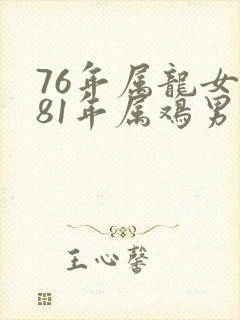 76年属龍女
81年属鸡男
王心馨